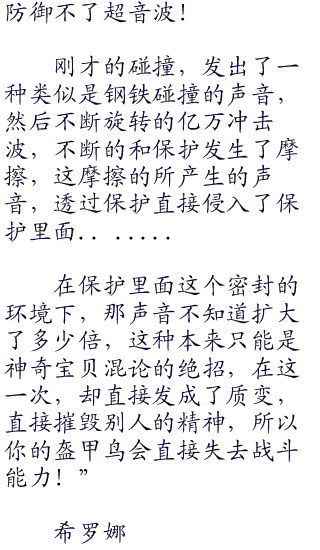 防御不了超音波！
刚才的碰撞，发出了一
种类似是钢铁碰撞的声音，
然后不断旋转的亿万冲击
波，不断的和保护发生了摩
擦，这摩擦的所产生的声
音，透过保护直接侵入了保
护里面．．．．．．．
在保护里面这个密封的
环境下，那声音不知道扩大
了多少倍，这种本来只能是
神奇宝贝混论的绝招，在这
一次，却直接发成了质变，
直接摧毁别人的精神，所以
你的盔甲鸟会直接失去战斗
能力！”
希罗娜